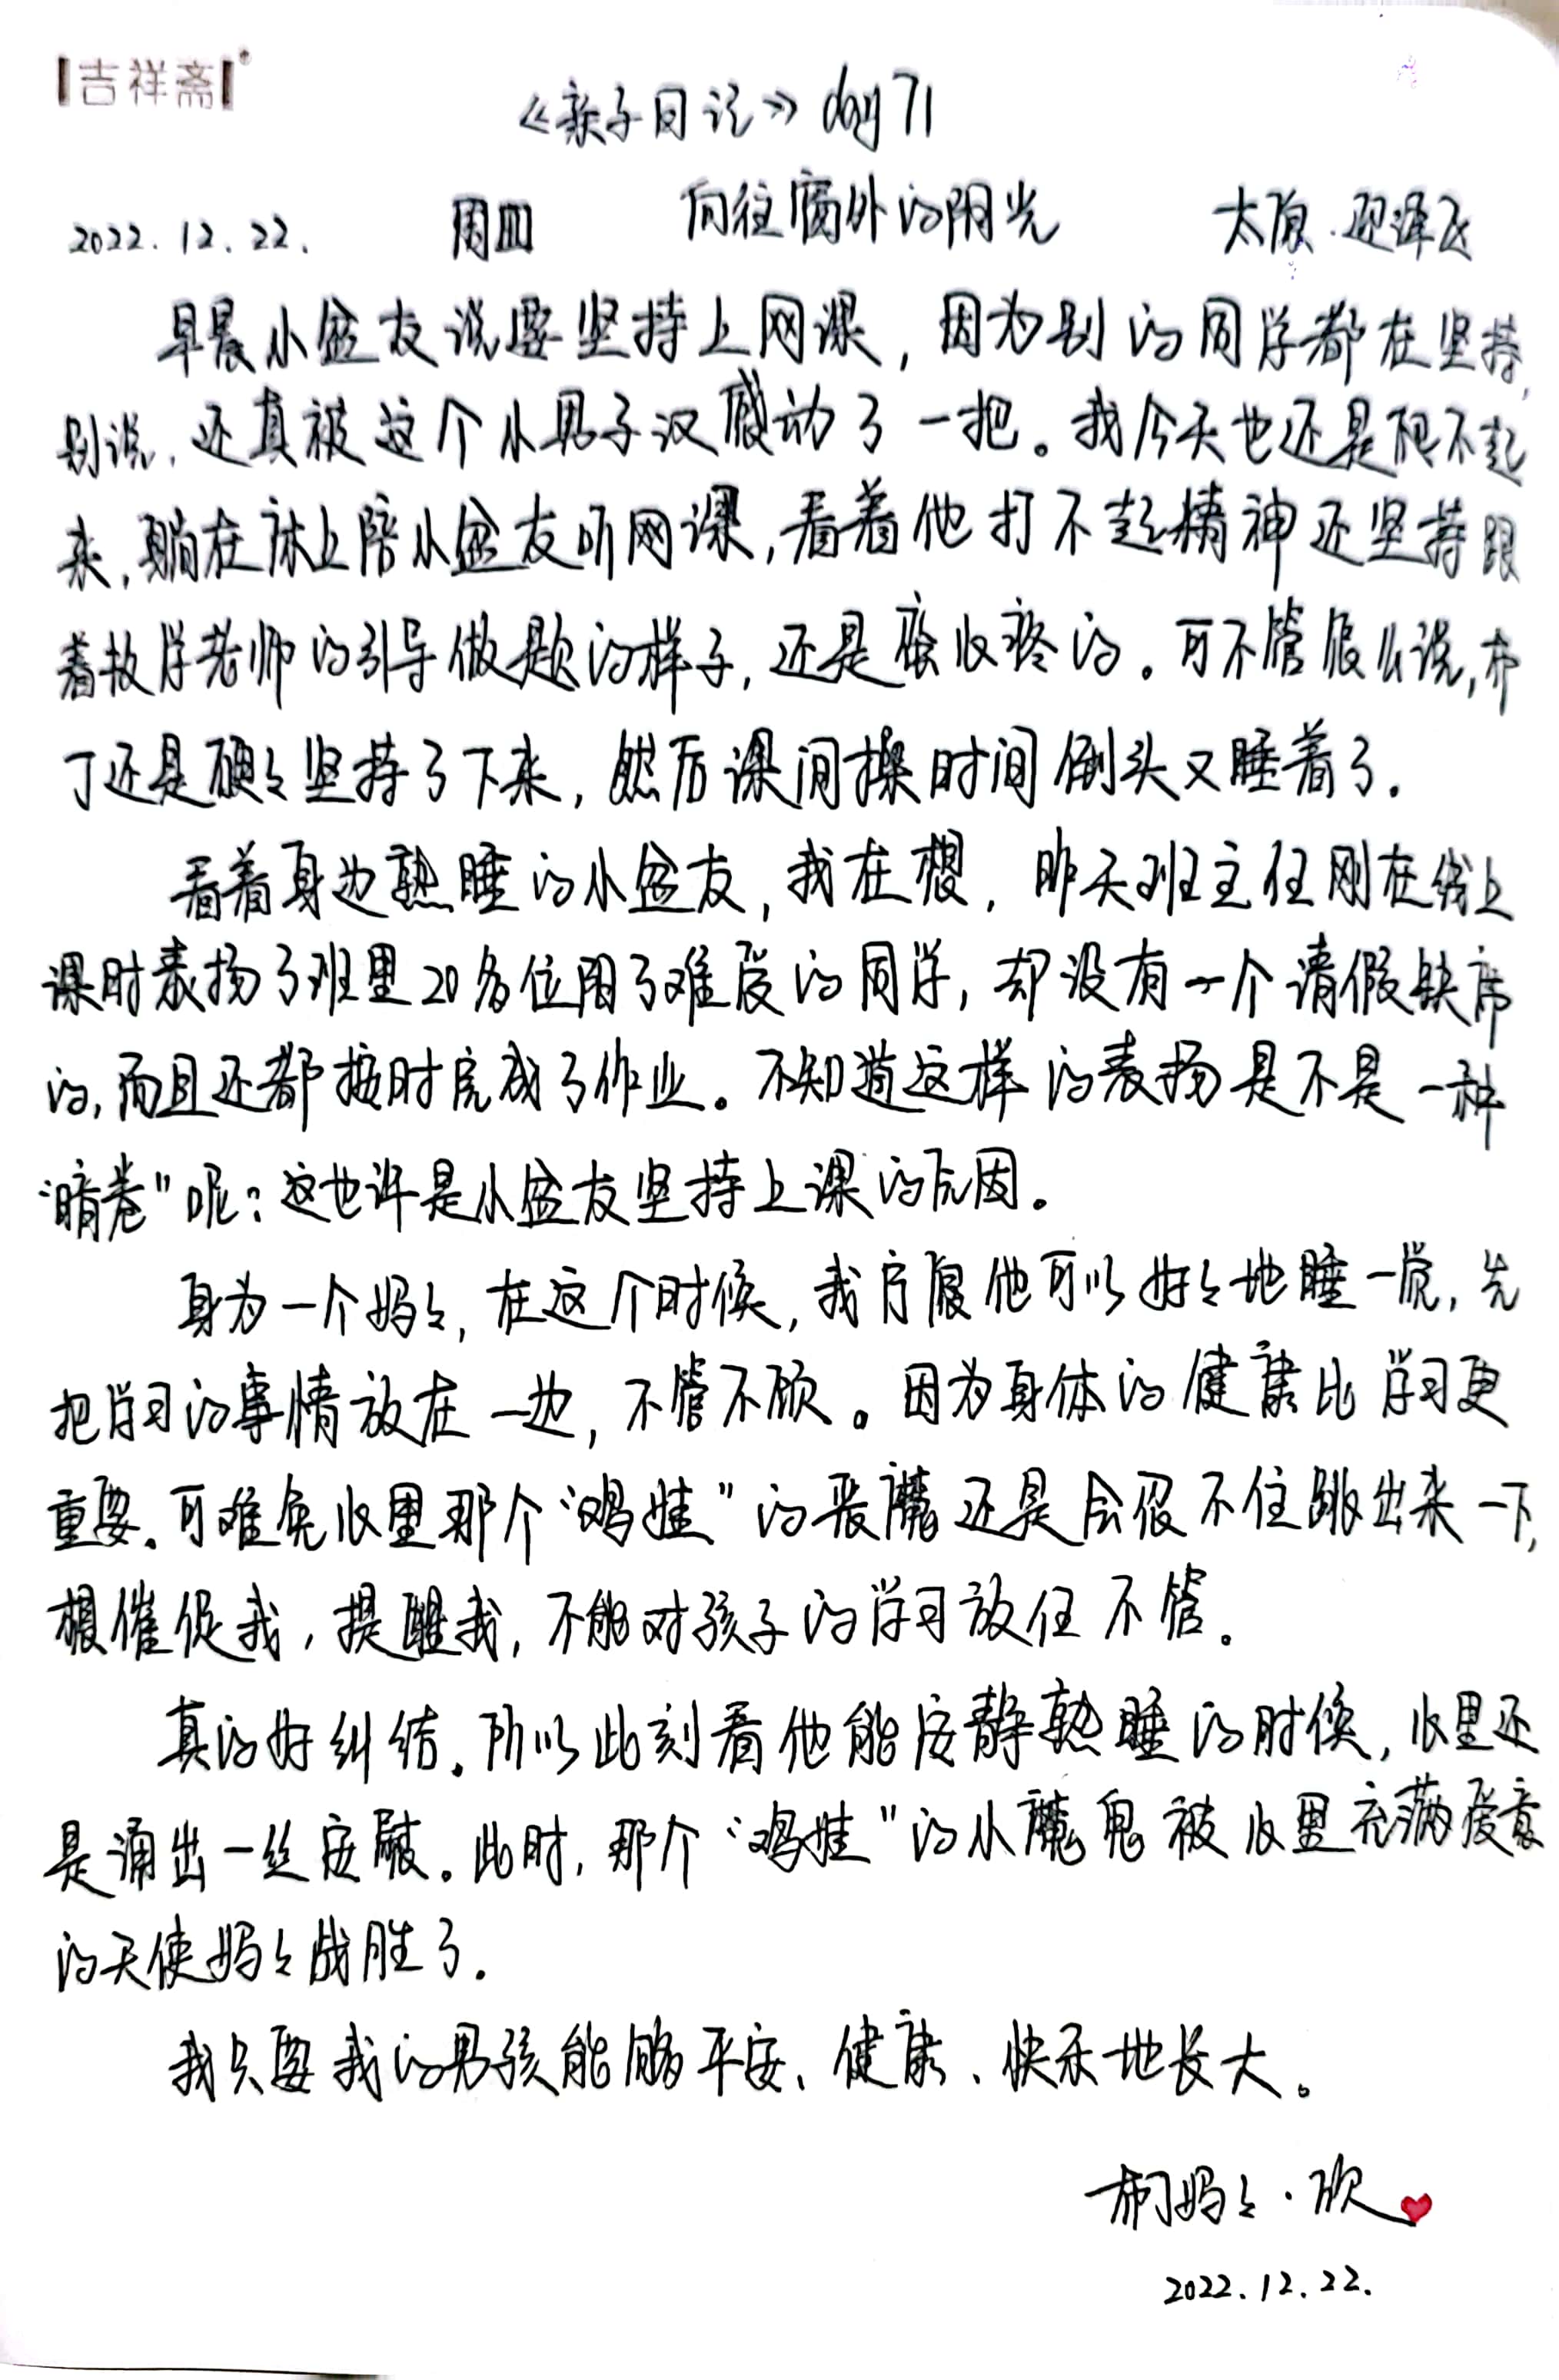 吉祥斋
《亲子日记》day71
2022.12.22. 周四 向往窗外的阳光 太原.迎泽区
早晨小盆友说要坚持上网课，因为别的同学都在坚持，
别说，还真被这个小男子汉感动了一把。我今天也还是爬不起
来，躺在床上陪小盆友听网课，看着他打不起精神还坚持跟
着教学老师的引导做题的样子，还是蛮心疼的。可不管怎么说，布
丁还是硬々坚持了下来，然后课间操时间倒头又睡着了.
看着身边熟睡的小盆友，我在想，昨天班主任刚在线上
课时表扬了班里20多位阳了难受的同学，却没有一个请假缺席
的，而且还都按时完成了作业。不知道这样的表扬是不是一种
“暗卷”呢？这也许是小盆友坚持上课的原因。
身为一个妈々，在这个时候，我宁愿他可以好々地睡一觉，先
把学习的事情放在一边，不管不顾。因为身体的健康比学习更
重要。可难免心里那个“鸡娃”的恶魔还是会忍不住跳出来一下，
想催促我，提醒我，不能对孩子的学习放任不管。
真的好纠结。所以此刻看他能安静熟睡的时候，心里还
是涌出一丝安慰。此时，那个“鸡娃”的小魔鬼被心里充满爱意
的天使妈々战胜了.
我只要我的男孩能够平安、健康、快乐地长大。
布丁妈々.欣
2022.12.22.